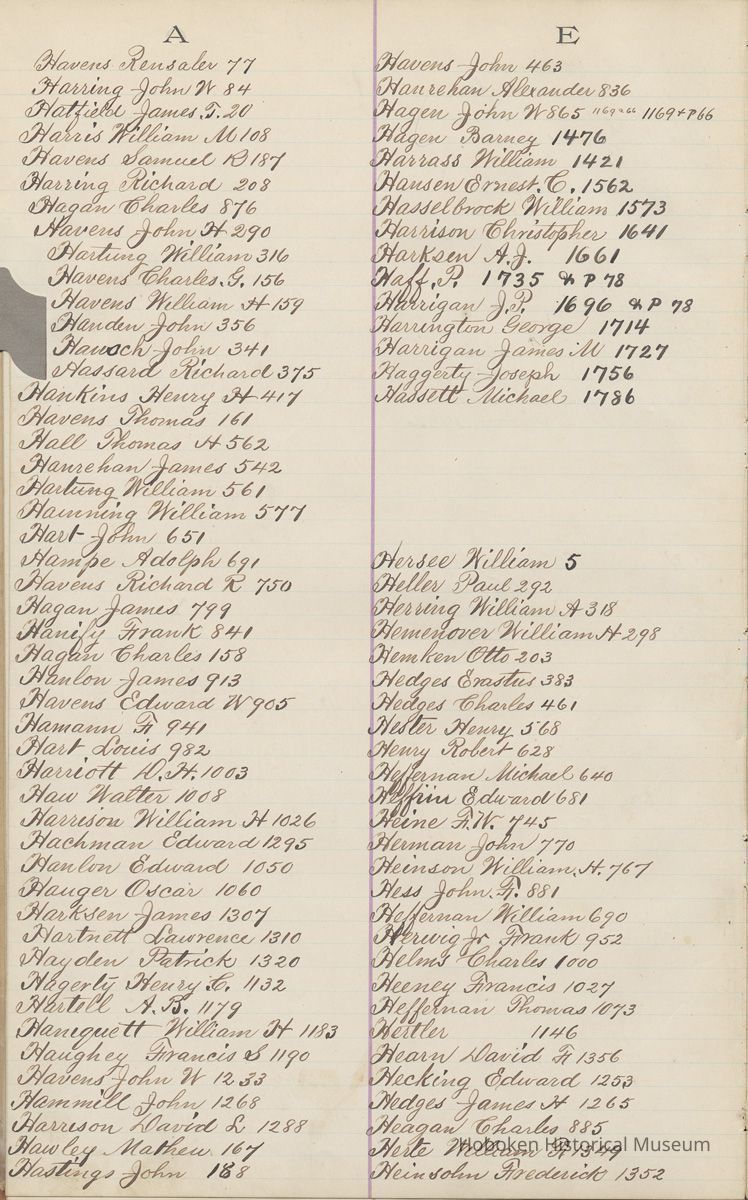 A
Havens Rensaler 77
Harring John W 84
Hatfield James T. 20
Harris William M 108
Havens Samuel R 187
Harring Richard 208
Hagan Charles 876
Havens John H 290
Hartung William 316
Havens Charles G. 156
Havens William H 159
Handen John 356
Hausch John 341
Hassard Richard 375
Hankins Henry H 417
Havens Thomas 161
Hall Thomas H 562
Hanrehan James 542
Hartung William 561
Hamning William 577
Hart John 651
Hampe Adolph 691
Havens Richard R 750
Hagan James 799
Hanify Frank 841
Hagan Charles 158
Hanlon James 913
Havens Edward W 905
Hamann F 941
Hart Louis 982
Harriott D. H. 1003
Haw Walter 1008
Harrison William H 1026
Hachman Edward 1295
Hanlon Edward 1050
Hauger Oscar 1060
Harksen James 1307
Hartnett Lawrence 1310
Hayden Patrick 1320
Hagerty Henry C. 1132
Hartell A. B. 1179
Haniquett William H 1183
Haughey Francis S 1190
Havens John W 1233
Hammill John 1268
Harrison David L 1288
Hawley Mathew 167
Hastings John 188
E
Havens John 463
Hanrehan Alexander 836
Hagen John W 865 1169 + P 66
Hagen Barney 1476
Harrass William 1421
Hansen Ernest. C. 1562
Hasselbrock William 1573
Harrison Christopher 1641
Harksen A. J. 1661
Haff. P. 1735 & P 78
Harrigan J. P. 1696 & P 78
Harrington George 1714
Harrigan James M 1727
Haggerty Joseph 1756
Hassett Michael 1786
Hersee William 5
Heller Paul 292
Herring William A 318
Hemenover William H 298
Hemken Otto 203
Hedges Erastus 383
Hedges Charles 461
Hester Henry 568
Henry Robert 628
Heffernan Michael 640
Heffrin Edward 681
Heine F. W. 745
Herman John 770
Heinson William. H. 767
Hess John. F. 881
Heffernan William 690
Herwig Jr Frank 952
Helms Charles 1000
Heeney Francis 1027
Heffernan Thomas 1073
Hertler 1146
Hearn David F 1356
Hecking Edward 1253
Hedges James H 1265
Heagan Charles 885
Herte William F 1349
Heinsohn Frederick 1352
Hoboken Historical Museum